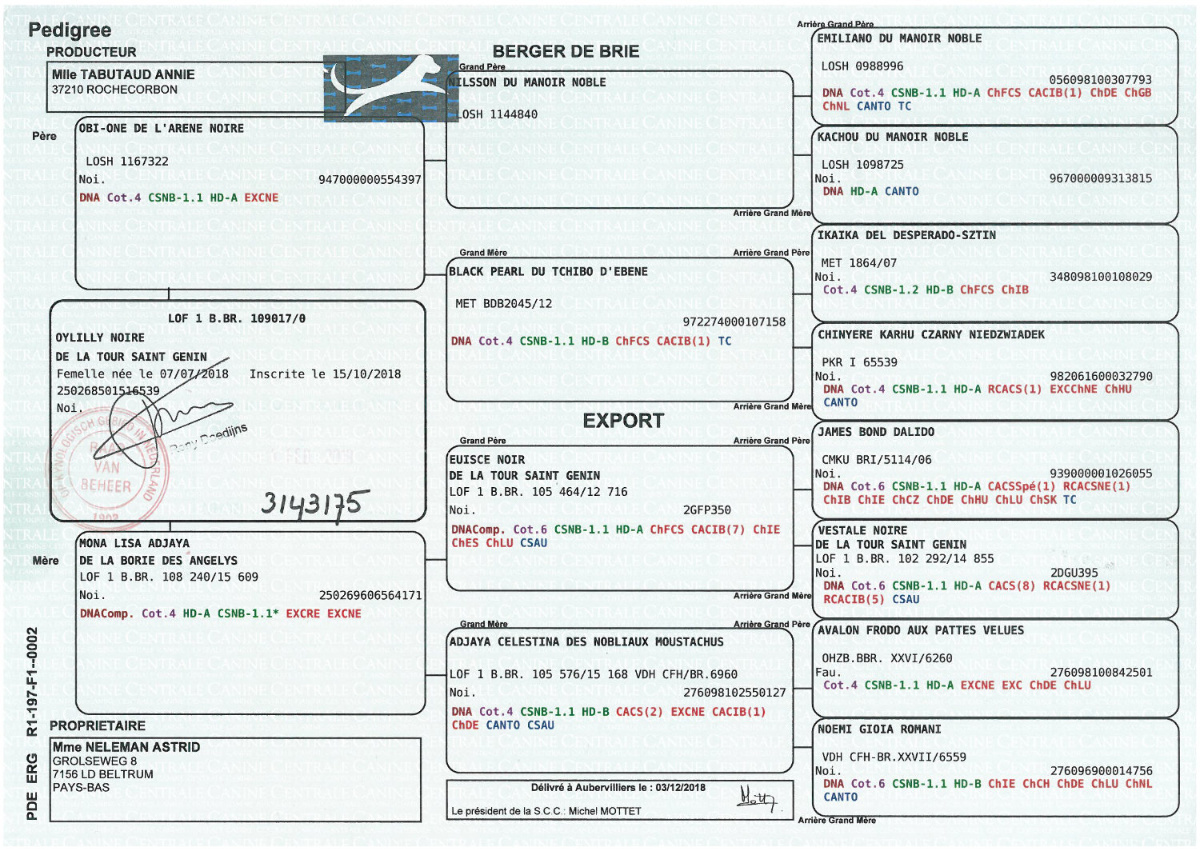 Pedigree
PRODUCTEUR
Mlle TABUTAUD ANNIE
37210 ROCHECORBON
BERGER DE BRIE
Père
OBI-ONE DE L'ARENE NOIRE
LOSH 1167322
Noi. 947000000554397
DNA Cot.4 CSNB-1.1 HD-A EXCNE
LOF 1 B.BR. 109017/0
OYLILLY NOIRE
DE LA TOUR SAINT GENIN
Femelle née le 07/07/2018 Inscrite le 15/10/2018
250268501516539
Noi.
RAAD
VAN
BEHEER
1902
3143175
Mère
MONA LISA ADJAYA
DE LA BORIE DES ANGELYS
LOF 1 B.BR. 108 240/15 609
Noi. 250269606564171
DNAComp. Cot.4 HD-A CSNB-1.1* EXCRE EXCNE
PDE ERG R1-197-F1--0002
PROPRIETAIRE
Mme NELEMAN ASTRID
GROLSEWEG 8
7156 LD BELTRUM
PAYS-BAS
Grand Père
NILSSON DU MANOIR NOBLE
LOSH 1144840
Grand Mère
BLACK PEARL DU TCHIBO D'EBENE
MET BDB2045/12
972274000107158
DNA Cot.4 CSNB-1.1 HD-B ChFCS CACIB(1) TC
EXPORT
Grand Père
EUISCE NOIR
DE LA TOUR SAINT GENIN
LOF 1 B.BR. 105 464/12 716
Noi. 2GFP350
DNAComp. Cot.6 CSNB-1.1 HD-A ChFCS CACIB(7) ChIE
ChES ChLU CSAU
Grand Mère
ADJAYA CELESTINA DES NOBLIAUX MOUSTACHUS
LOF 1 B.BR. 105 576/15 168 VDH CFH/BR.6960
Noi. 276098102550127
DNA Cot.4 CSNB-1.1 HD-B CACS(2) EXCNE CACIB(1)
ChDE CANTO CSAU
Délivré à Aubervilliers le : 03/12/2018
Le président de la S.C.C : Michel MOTTET
Arrière Grand Père
EMILIANO DU MANOIR NOBLE
LOSH 0988996
056098100307793
DNA Cot.4 CSNB-1.1 HD-A ChFCS CACIB(1) ChDE ChGB
ChNL CANTO TC
KACHOU DU MANOIR NOBLE
LOSH 1098725
Noi. 967000009313815
DNA HD-A CANTO
Arrière Grand Mère
IKAIKA DEL DESPERADO-SZTIN
MET 1864/07
Noi. 348098100108029
Cot.4 CSNB-1.2 HD-B ChFCS ChIB
Arrière Grand Père
CHINYERE KARHU CZARNY NIEDZWIADEK
PKR I 65539
Noi. 982061600032790
DNA Cot.4 CSNB-1.1 HD-A RCACS(1) EXCChNE ChHU
CANTO
Arrière Grand Mère
JAMES BOND DALIDO
CMKU BRI/5114/06
Noi. 939000001026055
DNA Cot.6 CSNB-1.1 HD-A CACSSpé(1) RCACSNE(1)
ChIB ChIE ChCZ ChDE ChHU ChLU ChSK TC
Arrière Grand Père
VESTALE NOIRE
DE LA TOUR SAINT GENIN
LOF 1 B.BR. 102 292/14 855
Noi. 2DGU395
DNA Cot.6 CSNB-1.1 HD-A CACS(8) RCACSNE(1)
RCACIB(5) CSAU
Arrière Grand Mère
AVALON FRODO AUX PATTES VELUES
OHZB.BBR. XXVI/6260
Fau. 276098100842501
Cot.4 CSNB-1.1 HD-A EXCNE EXC ChDE ChLU
Arrière Grand Père
NOEMI GIOIA ROMANI
VDH CFH-BR.XXVII/6559
Noi. 276096900014756
DNA Cot.6 CSNB-1.1 HD-B ChIE ChCH ChDE ChLU ChNL
CANTO
Arrière Grand Mère